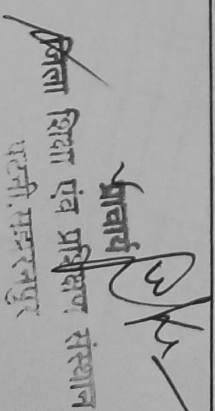 प्राचार्य
जिला शिक्षा एंव प्रशिक्षण संस्थान
पटनी, सहारनपुर